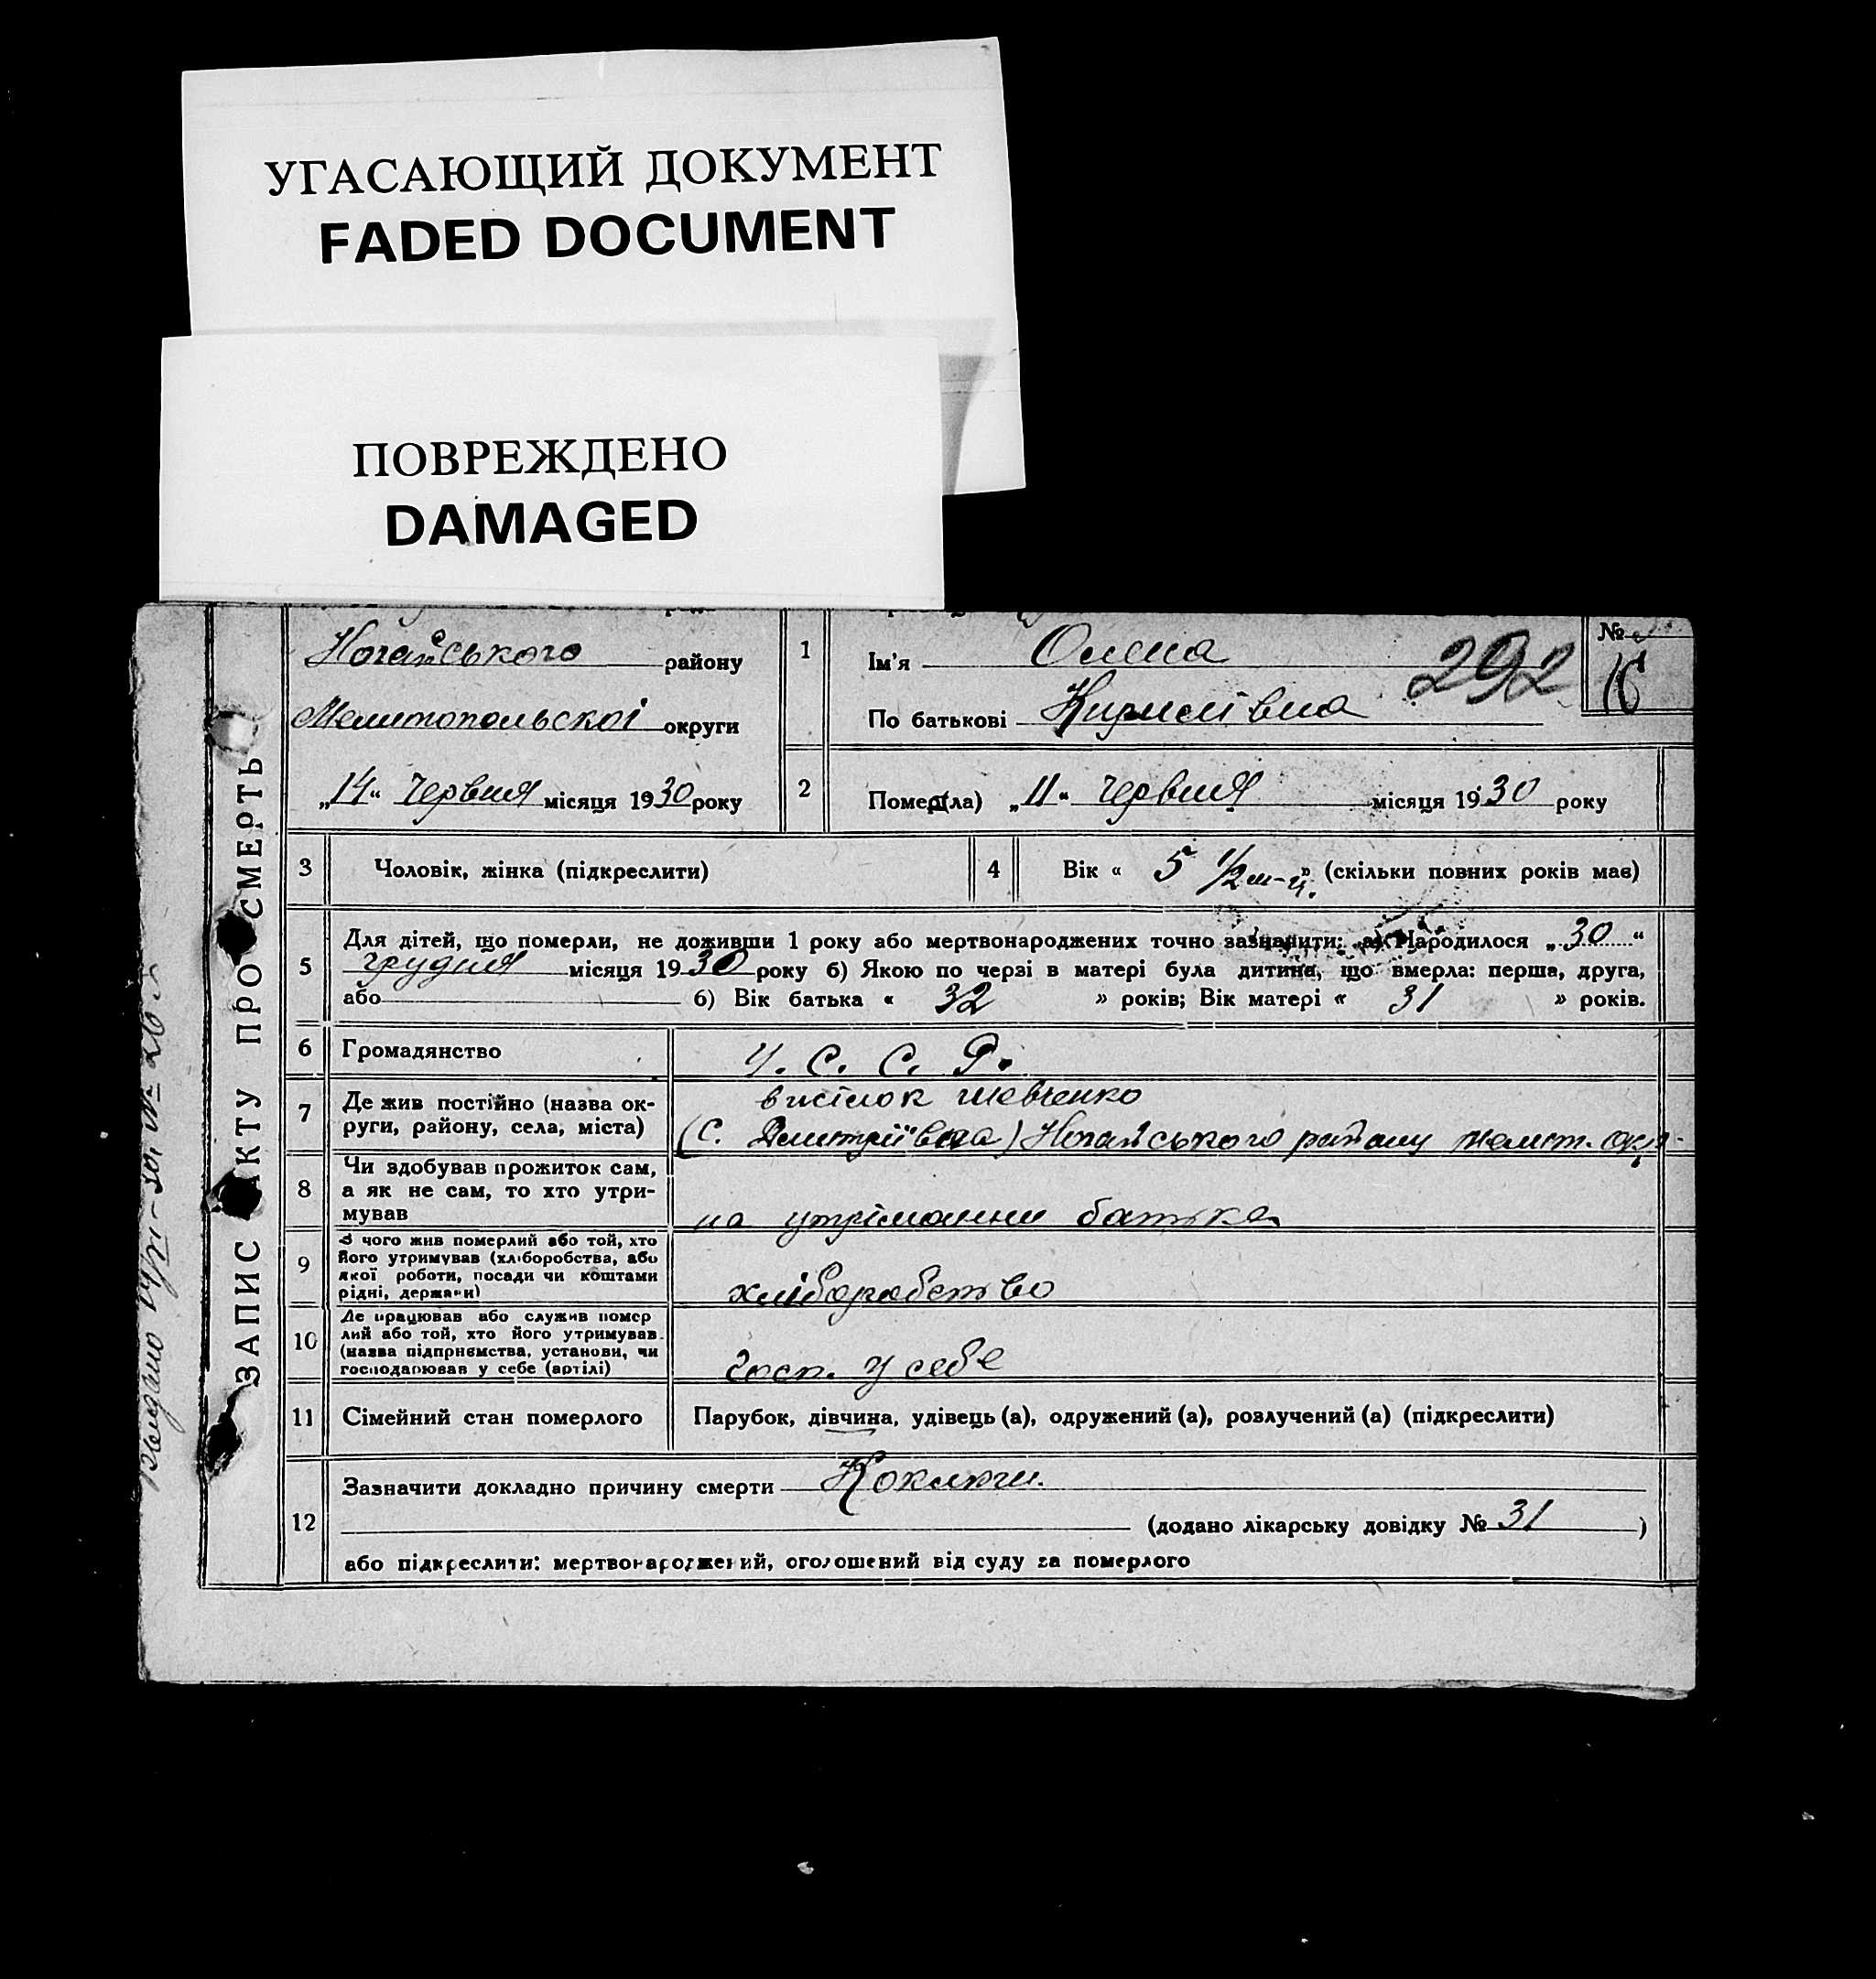 УГАСАЮЩИЙ ДОКУМЕНТ
FADED DOCUMENT
ПОВРЕЖДЕНО
DAMAGED
ЗАПИС АКТУ ПРО СМЕРТЬ
Ногайського району
Мелитопольскої округи
„14“ червня місяця 1930 року
1
Ім'я Олена
По батькові Кирилівна
292
№
16
2
Помер(ла) „11“ червня місяця 1930 року
3
Чоловік, жінка (підкреслити)
4
Вік « 5 1/2 м-ц. » (скільки повних років має)
5
Для дітей, що померли, не доживши 1 року або мертвонароджених точно зазначити: а) Народилося „30“
грудня місяця 1930 року б) Якою по черзі в матері була дитина, що вмерла: перша, друга,
або б) Вік батька « 32 » років; Вік матері « 31 » років.
6
Громадянство
У. С. С. Р.
7
Де жив постійно (назва ок-
руги, району, села, міста)
висілок Шевченко
(с. Дмитріївка) Ногайського району меліт. окр.
8
Чи здобував прожиток сам,
а як не сам, то хто утри-
мував
на утріманни батька
9
З чого жив померлий або той, хто
його утримував (хліборобства, або
якої роботи, посади чи коштами
рідні, держави)
хліборобство
10
Де працював або служив помер
лий або той, хто його утримував.
(назва підприємства, установи, чи
господарював у себе (артілі)
госп. у себе
11
Сімейний стан померлого
Парубок, дівчина, удівець (а), одружений (а), розлучений (а) (підкреслити)
12
Зазначити докладно причину смерти Коклюш.
(додано лікарську довідку № 31 )
або підкреслити: мертвонароджений, оголошений від суду за померлого